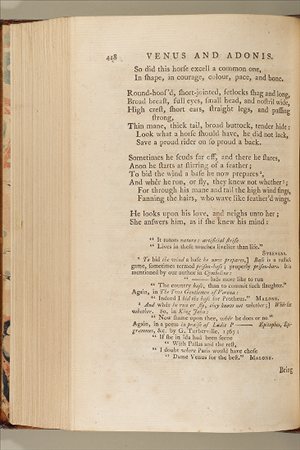 428 VENUS AND ADONIS.
So did this horse excell a common one,
In shape, in courage, colour, pace, and bone.
Round-hoof'd, short-jointed, fetlocks shag and long,
Broad breast, full eyes, small head, and nostril wide,
High crest, short ears, straight legs, and passing
strong,
Thin mane, thick tail, broad buttock, tender hide:
Look what a horse should have, he did not lack,
Save a proud rider on so proud a back.
Sometimes he scuds far off, and there he stares,
Anon he starts at stirring of a feather;
To bid the wind a base he now prepares ²,
And whêr he run, or fly, they knew not whether ³;
For through his mane and tail the high wind sings,
Fanning the hairs, who wave like feather'd wings.
He looks upon his love, and neighs unto her;
She answers him, as if she knew his mind:
" It tutors nature: artificial strife
" Lives in these touches livelier than life."
STEEVENS.
² To bid the wind a base he now prepares,] Base is a rustick
game, sometimes termed prison-base; properly prison-bars. It is
mentioned by our author in Cymbeline:
" —— lads more like to run
" The country base, than to commit such slaughter."
Again, in The Two Gentlemen of Verona:
" Indeed I bid the base for Protheus." MALONE.
³ And whêr he run or fly, they knew not whether;] Whêr for
whether. So, in King John:
" Now shame upon thee, whêr he does or no"
Again, in a poem in praise of Ladie P—— Epitaphes, Epi-
grammes, &c. by G. Turberville, 1563:
" If she in Ida had been seene
" With Pallas and the rest,
" I doubt where Paris would have chose
" Dame Venus for the best." MALONE.
Bring